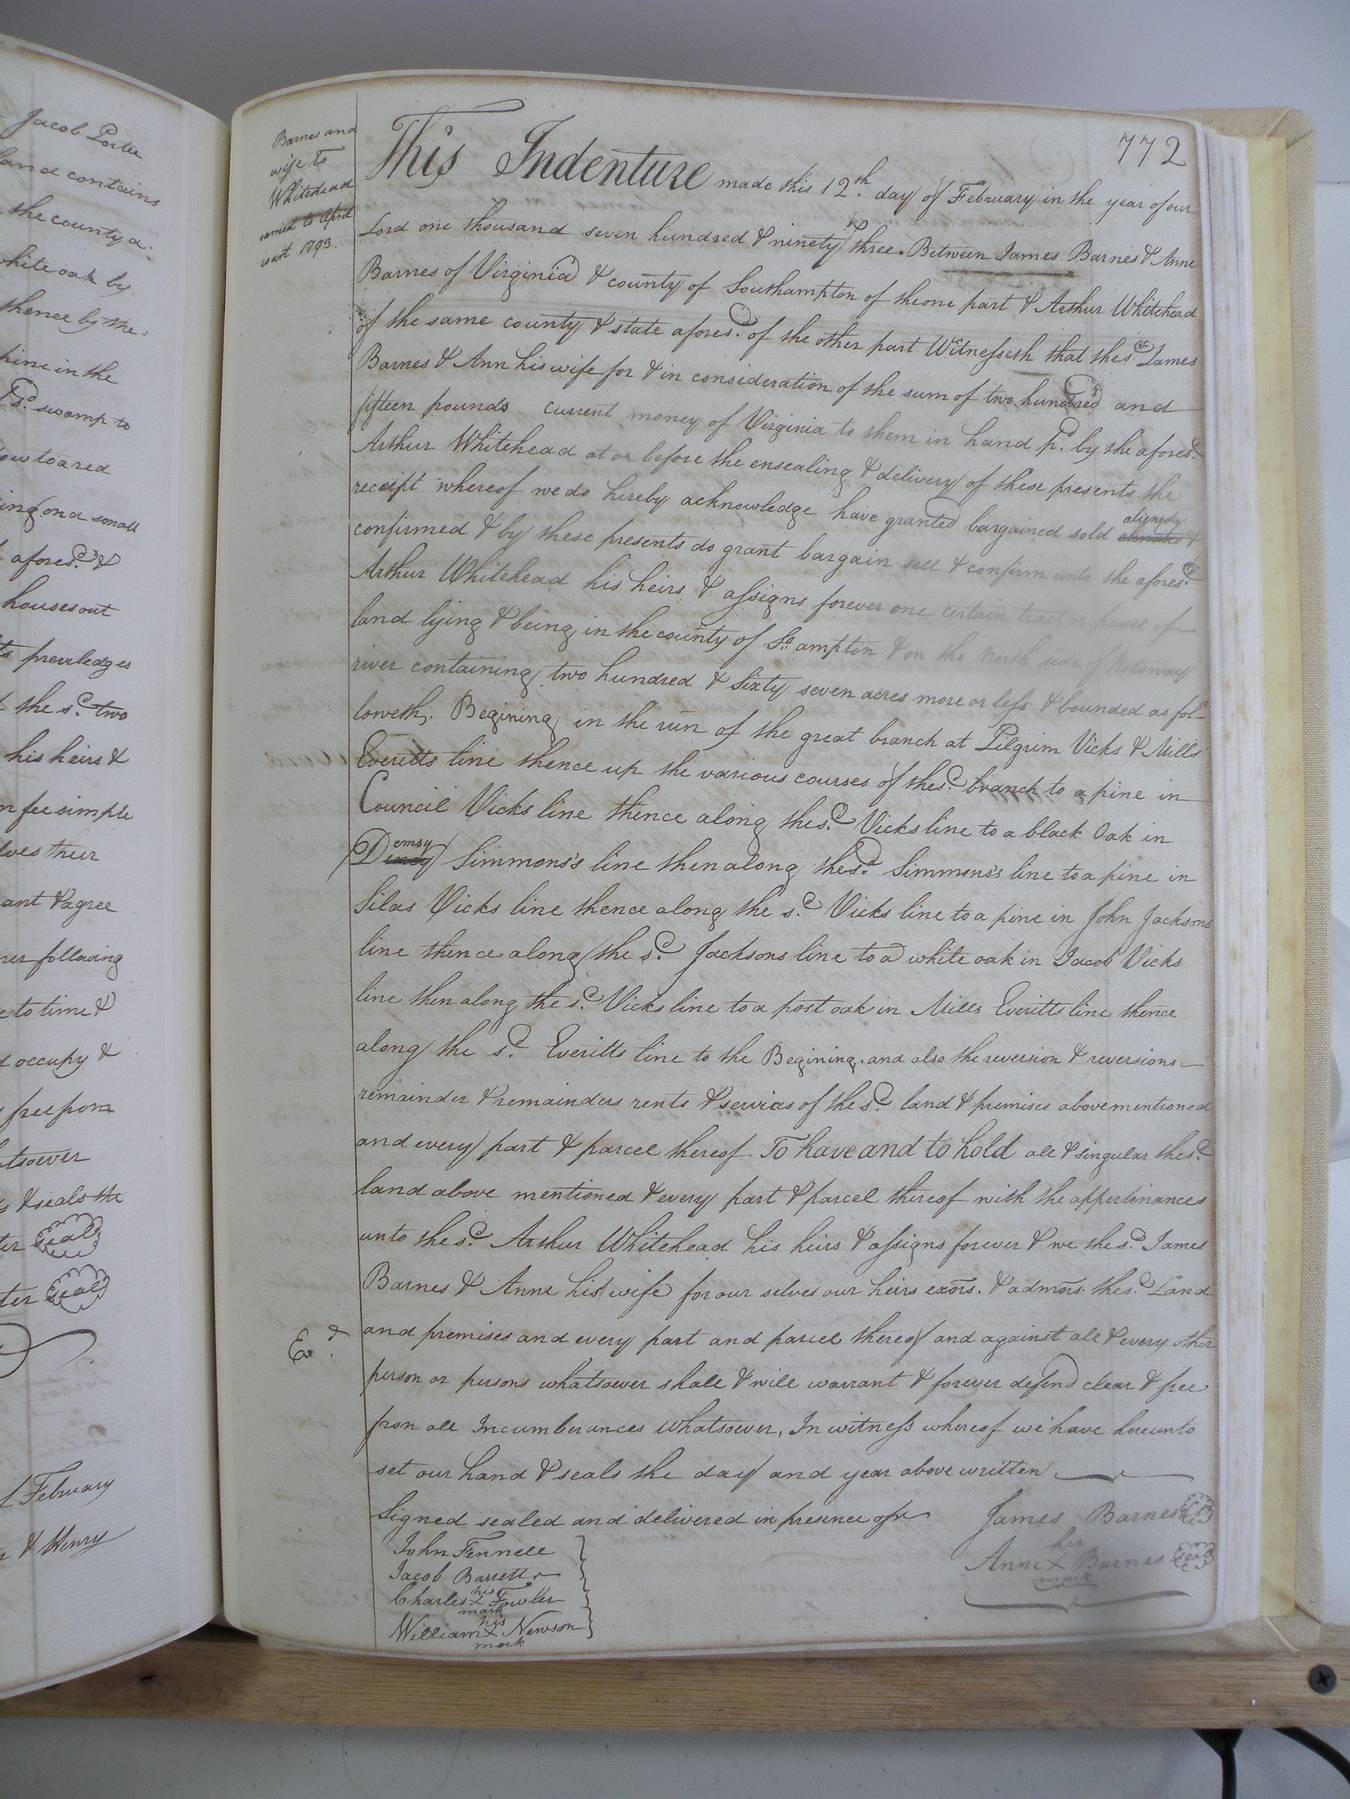 Jacob Porter
land contains
the county a
white oak by
thence by the
pine in the
sd. swamp to
low to a red
ing on a small
aforesd. &
houses out
priviledges
the sd. two
his heirs &
in fee simple
lves their
ant & agree
ner following
e to time &
d occupy &
free from
atsoever
& seals the
ter seal
ter seal
February
& Henry
772
Barnes and
wife to
Whitehead
carried to April
court 1793.
This Indenture made this 12th. day of February in the year of our
Lord one thousand seven hundred & ninety three. Between James Barnes & Anne
Barnes of Virginia & county of Southampton of the one part & Arthur Whitehead
of the same county & state aforesd. of the other part Witnesseth that the sd. James
Barnes & Ann his wife for & in consideration of the sum of two hundred and
fifteen pounds current money of Virginia to them in hand pd. by the aforesd.
Arthur Whitehead at or before the ensealing & delivery of these presents the
receipt whereof we do hereby acknowledge have granted bargained sold aliened &
confirmed & by these presents do grant bargain sell & confirm unto the aforesd.
Arthur Whitehead his heirs & assigns forever one certain tract or parcel of
land lying & being in the county of So.ampton & on the North side of Notoway
river containing two hundred & Sixty seven acres more or less & bounded as fol-
loweth. Begining in the run of the great branch at Pilgrim Vicks & Mills
Everitts line thence up the various courses of the sd. branch to a pine in
Council Vicks line thence along the sd. Vicks line to a black Oak in
Demsy Simmons's line then along the sd. Simmons's line to a pine in
Silas Vicks line thence along the sd. Vicks line to a pine in John Jacksons
line thence along the sd. Jacksons line to a white oak in Jacob Vicks
line then along the sd. Vicks line to a post oak in Mills Everitts line thence
along the sd. Everitts line to the Begining. and also the reversion & reversions
remainder & remainders rents & servicas of the sd. land & premises above mentioned
and every part & parcel thereof. To have and to hold all & singular the sd.
land above mentioned & every part & parcel thereof with the appertinances
unto the sd. Arthur Whitehead his heirs & assigns forever & we the sd. James
Barnes & Anne his wife for our selves our heirs exors. & admors. the sd. Land
Exd.
and premises and every part and parcel thereof and against all & every other
person or persons whatsoever shall & will warrant & forever defend clear & free
from all Incumberances whatsoever, In witness whereof we have hereunto
set our hand & seals the day and year above written
Signed sealed and delivered in presence of
James Barnes
John Fennell
Anne her X mark Barnes seal
Jacob Barrett
Charles his X mark Fowler
William his X mark Newson